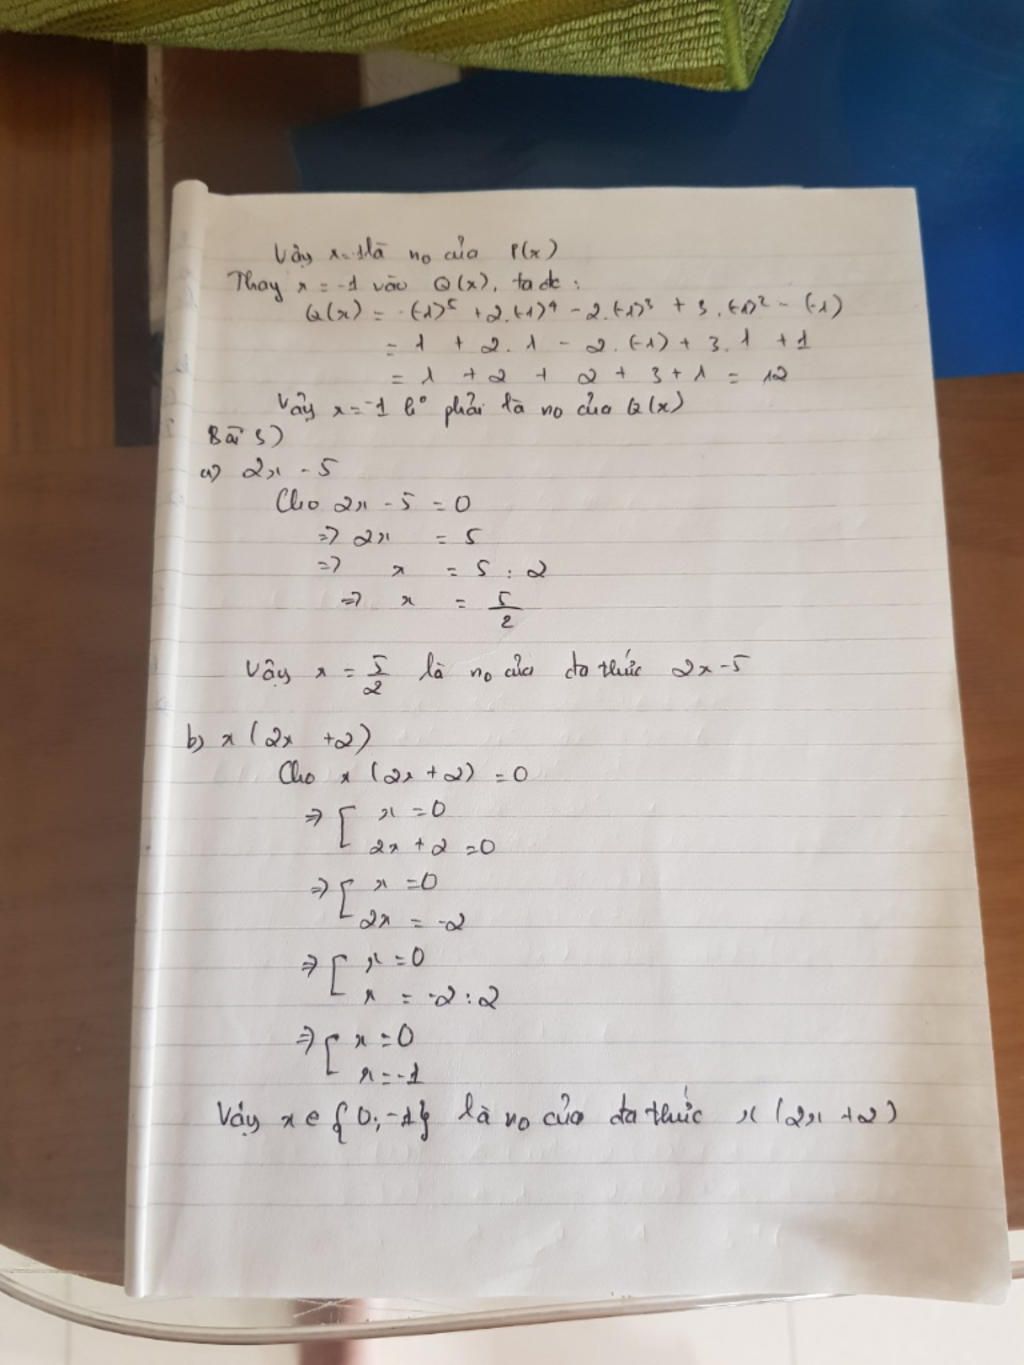 Vậy x=-1 là no của P(x)
Thay x = -1 vào Q(x), ta đc :
Q(x) = -(-1)⁵ + 2.(-1)⁴ - 2.(-1)³ + 3.(-1)² - (-1)
= 1 + 2.1 - 2.(-1) + 3.1 + 1
= 1 + 2 + 2 + 3 + 1 = 12
Vậy x = -1 k° phải là no của Q(x)
Bài 5)
a) 2x - 5
Cho 2x - 5 = 0
=> 2x = 5
=> x = 5 : 2
=> x = 5/2
Vậy x = 5/2 là no của đa thức 2x - 5
b) x (2x + 2)
Cho x (2x + 2) = 0
=> [ x = 0
2x + 2 = 0
=> [ x = 0
2x = -2
=> [ x = 0
x = -2 : 2
=> [ x = 0
x = -1
Vậy x ∈ {0; -1} là no của đa thức x (2x + 2)